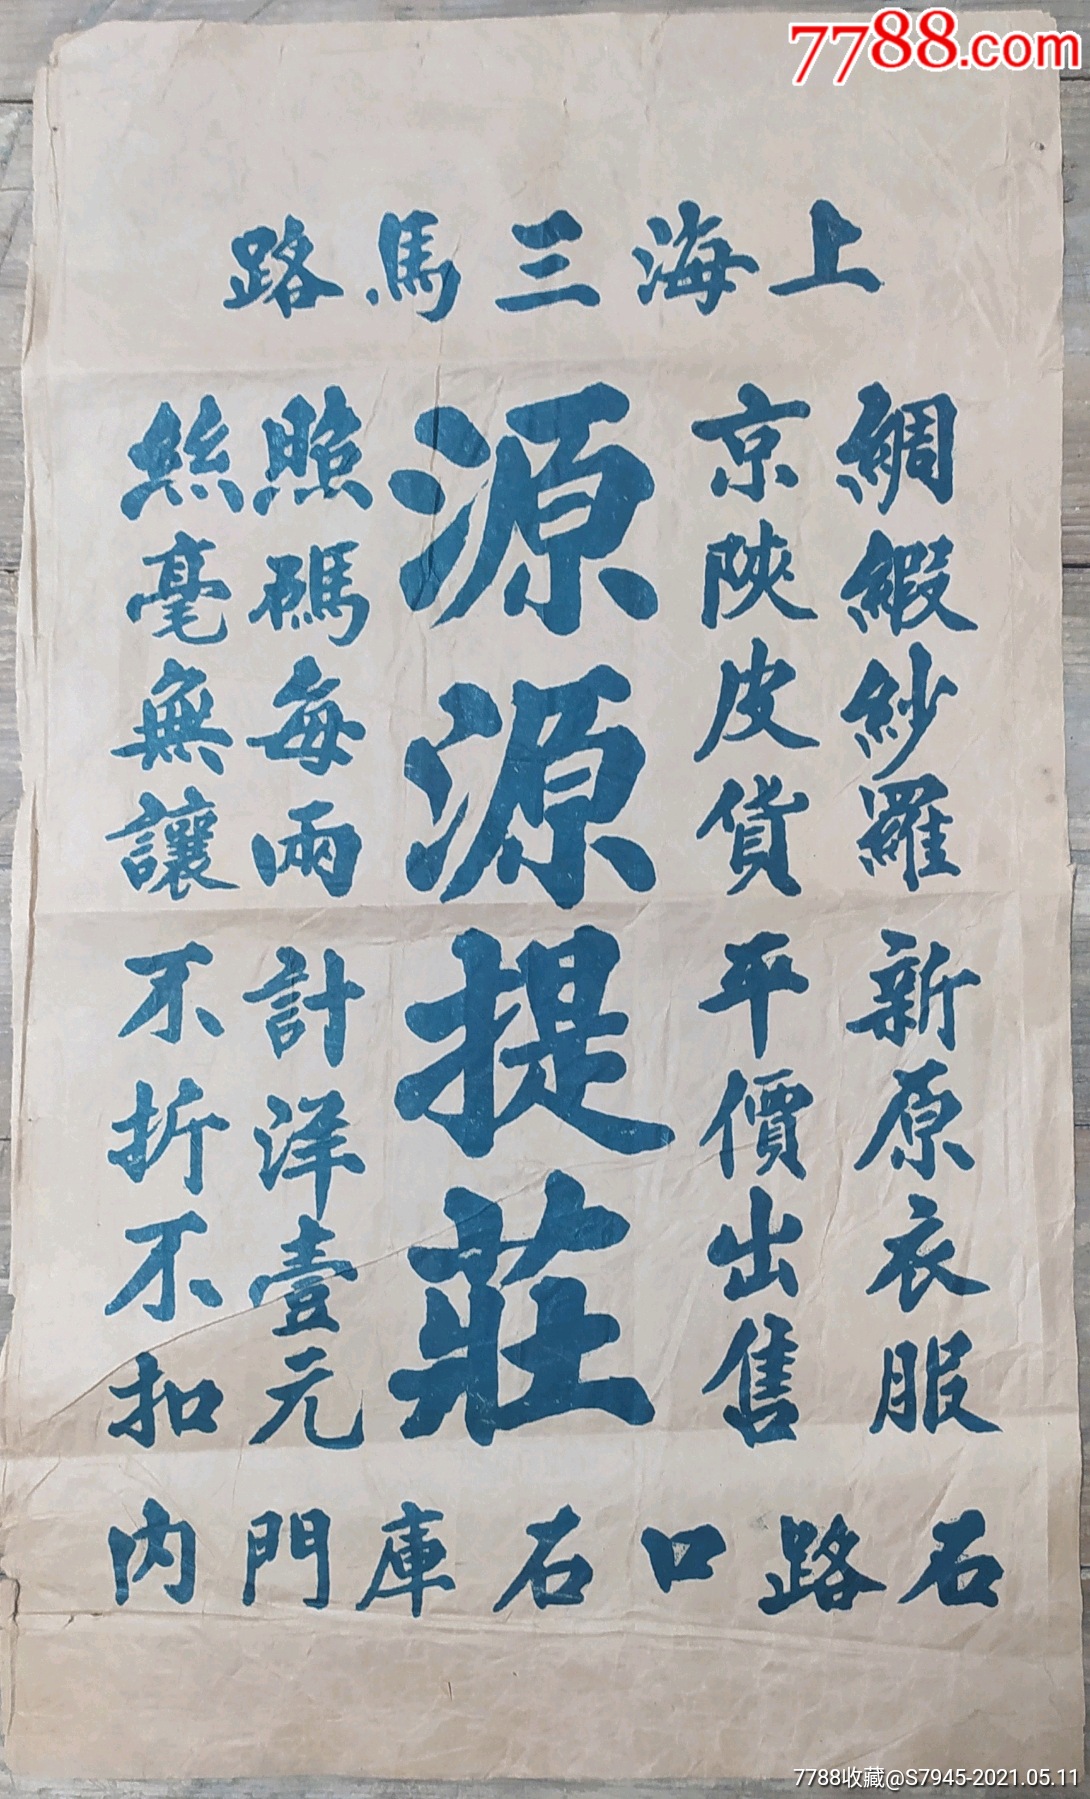 7788.com
上海三馬路
綢緞紗羅新原衣服
京陝皮貨平價出售
源源提莊
照碼每兩計洋壹元
絲毫無讓不折不扣
石路口石庫門內
7788收藏@S7945-2021.05.11